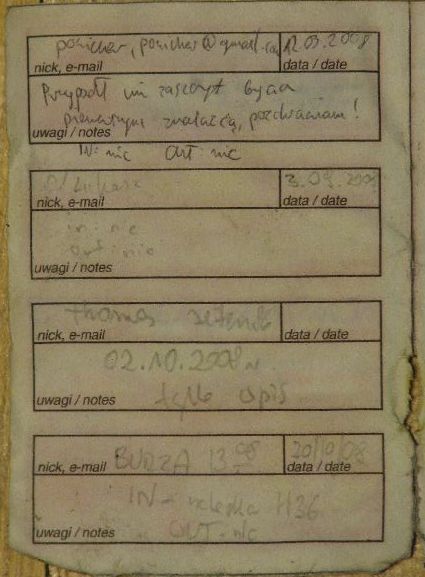 ponichar, ponichar@gmail.com 12.03.2008
nick, e-mail data / date
Przypadł mi zaszczyt bycia
pierwszym znalazcą, pozdrawiam!
uwagi / notes
IN: nic OUT: nic
Łukasz 3.09.2008
nick, e-mail data / date
in: nic
out: nic
uwagi / notes
thomas
nick, e-mail data / date
02.10.2008
tylko wpis
uwagi / notes
BURZA 13 08 20/10/08
nick, e-mail data / date
IN - H36
uwagi / notes OUT - nic